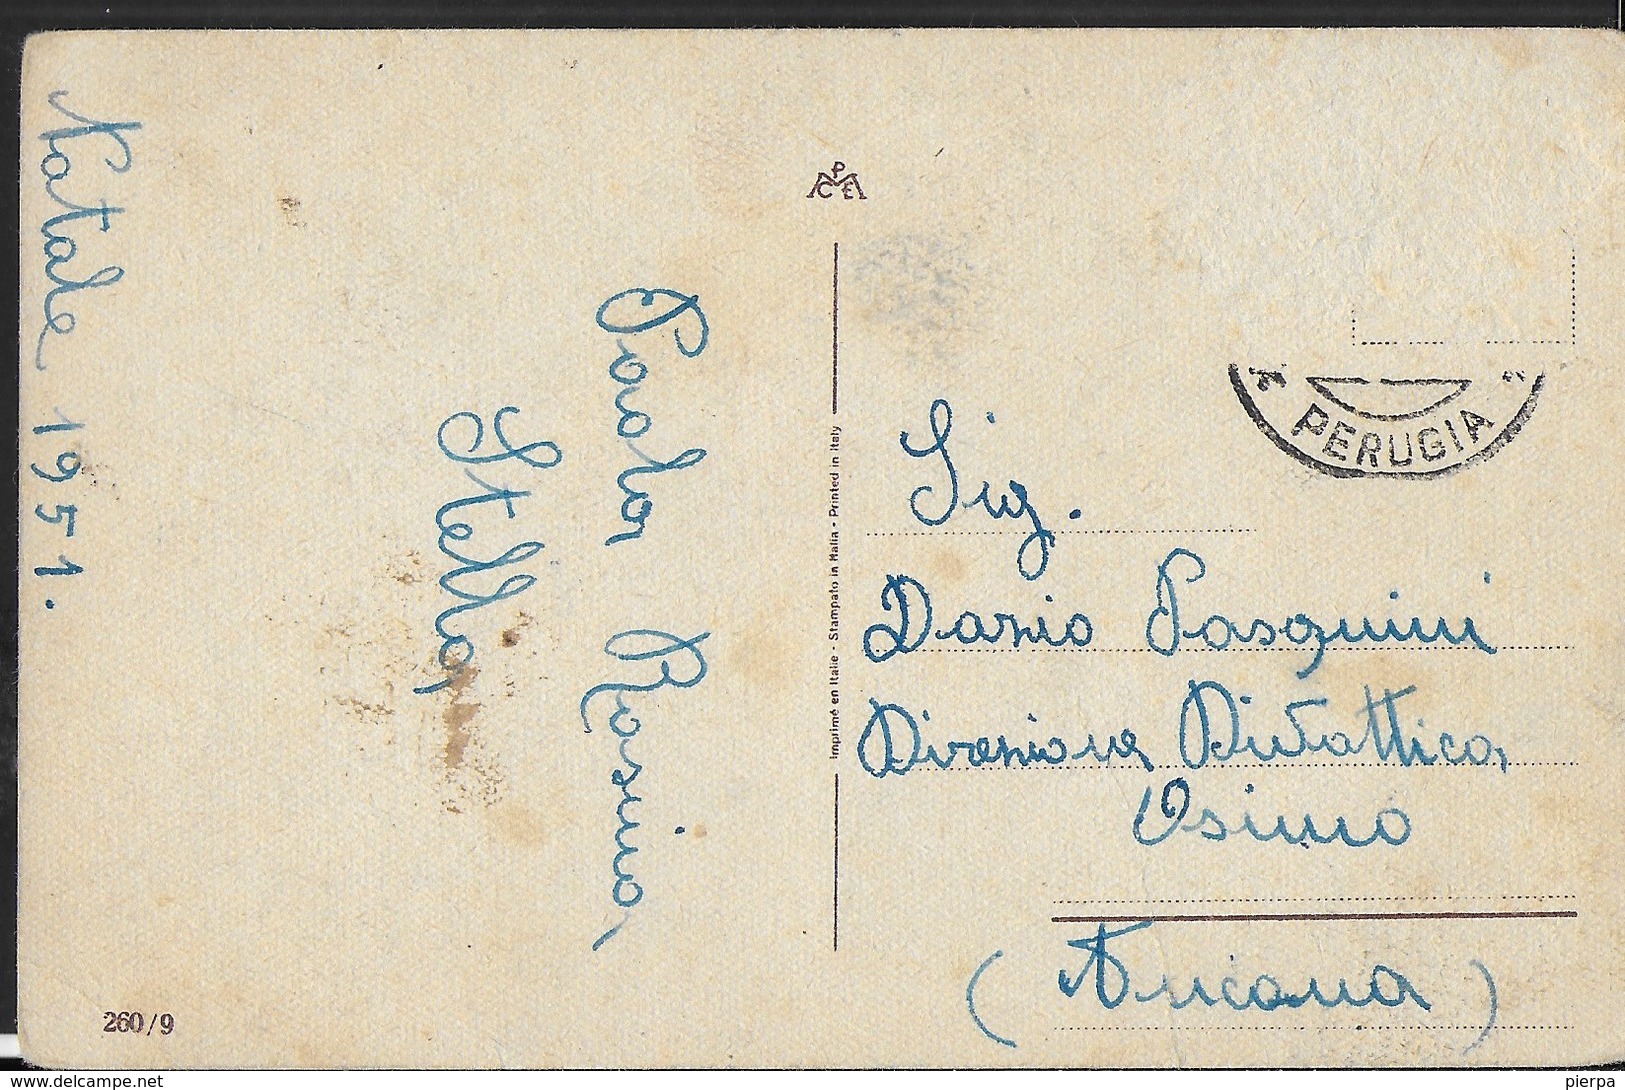 Natale 1951.
Paola Rosina
Stella
260/9
CPME
Imprimé en Italie - Stampato in Italia - Printed in Italy
PERUGIA
Sig.
Dario Pasquini
Direzione Didattica
Osimo
(Ancona)
www.delcampe.net
pierpa